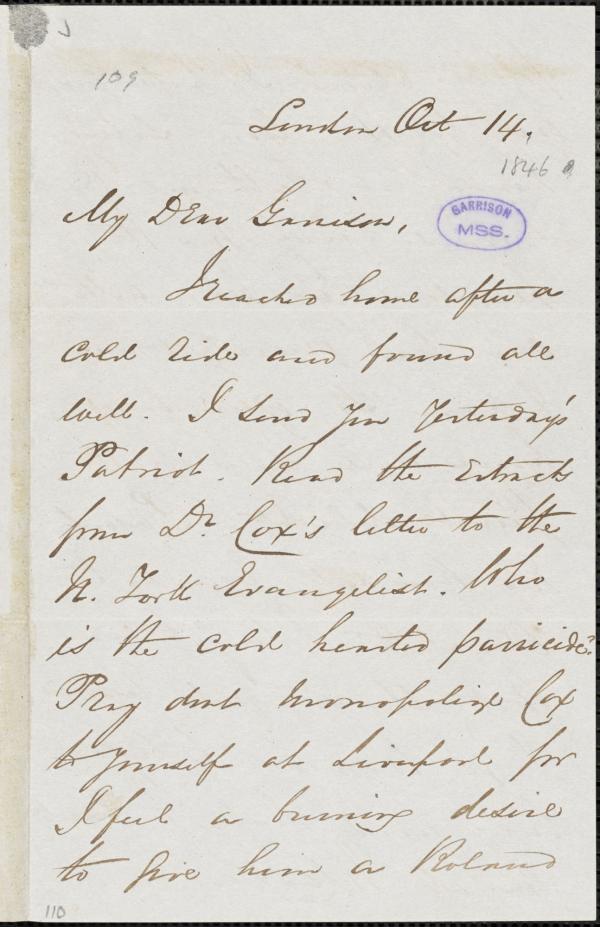 109
London Oct 14.
1846
My Dear Garrison,
GARRISON
MSS.
I reached home after a
cold ride and found all
well. I send you Yesterday's
Patriot. Read the extracts
from Dr. Cox's letter to the
N. York Evangelist. Who
is the cold hearted parricide?
Pray dont monopolize Cox
to yourself at Liverpool for
I feel a burning desire
to give him a Roland
110